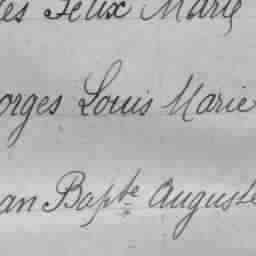 les Félix Marie
orges Louis Marie
an Bapte Auguste